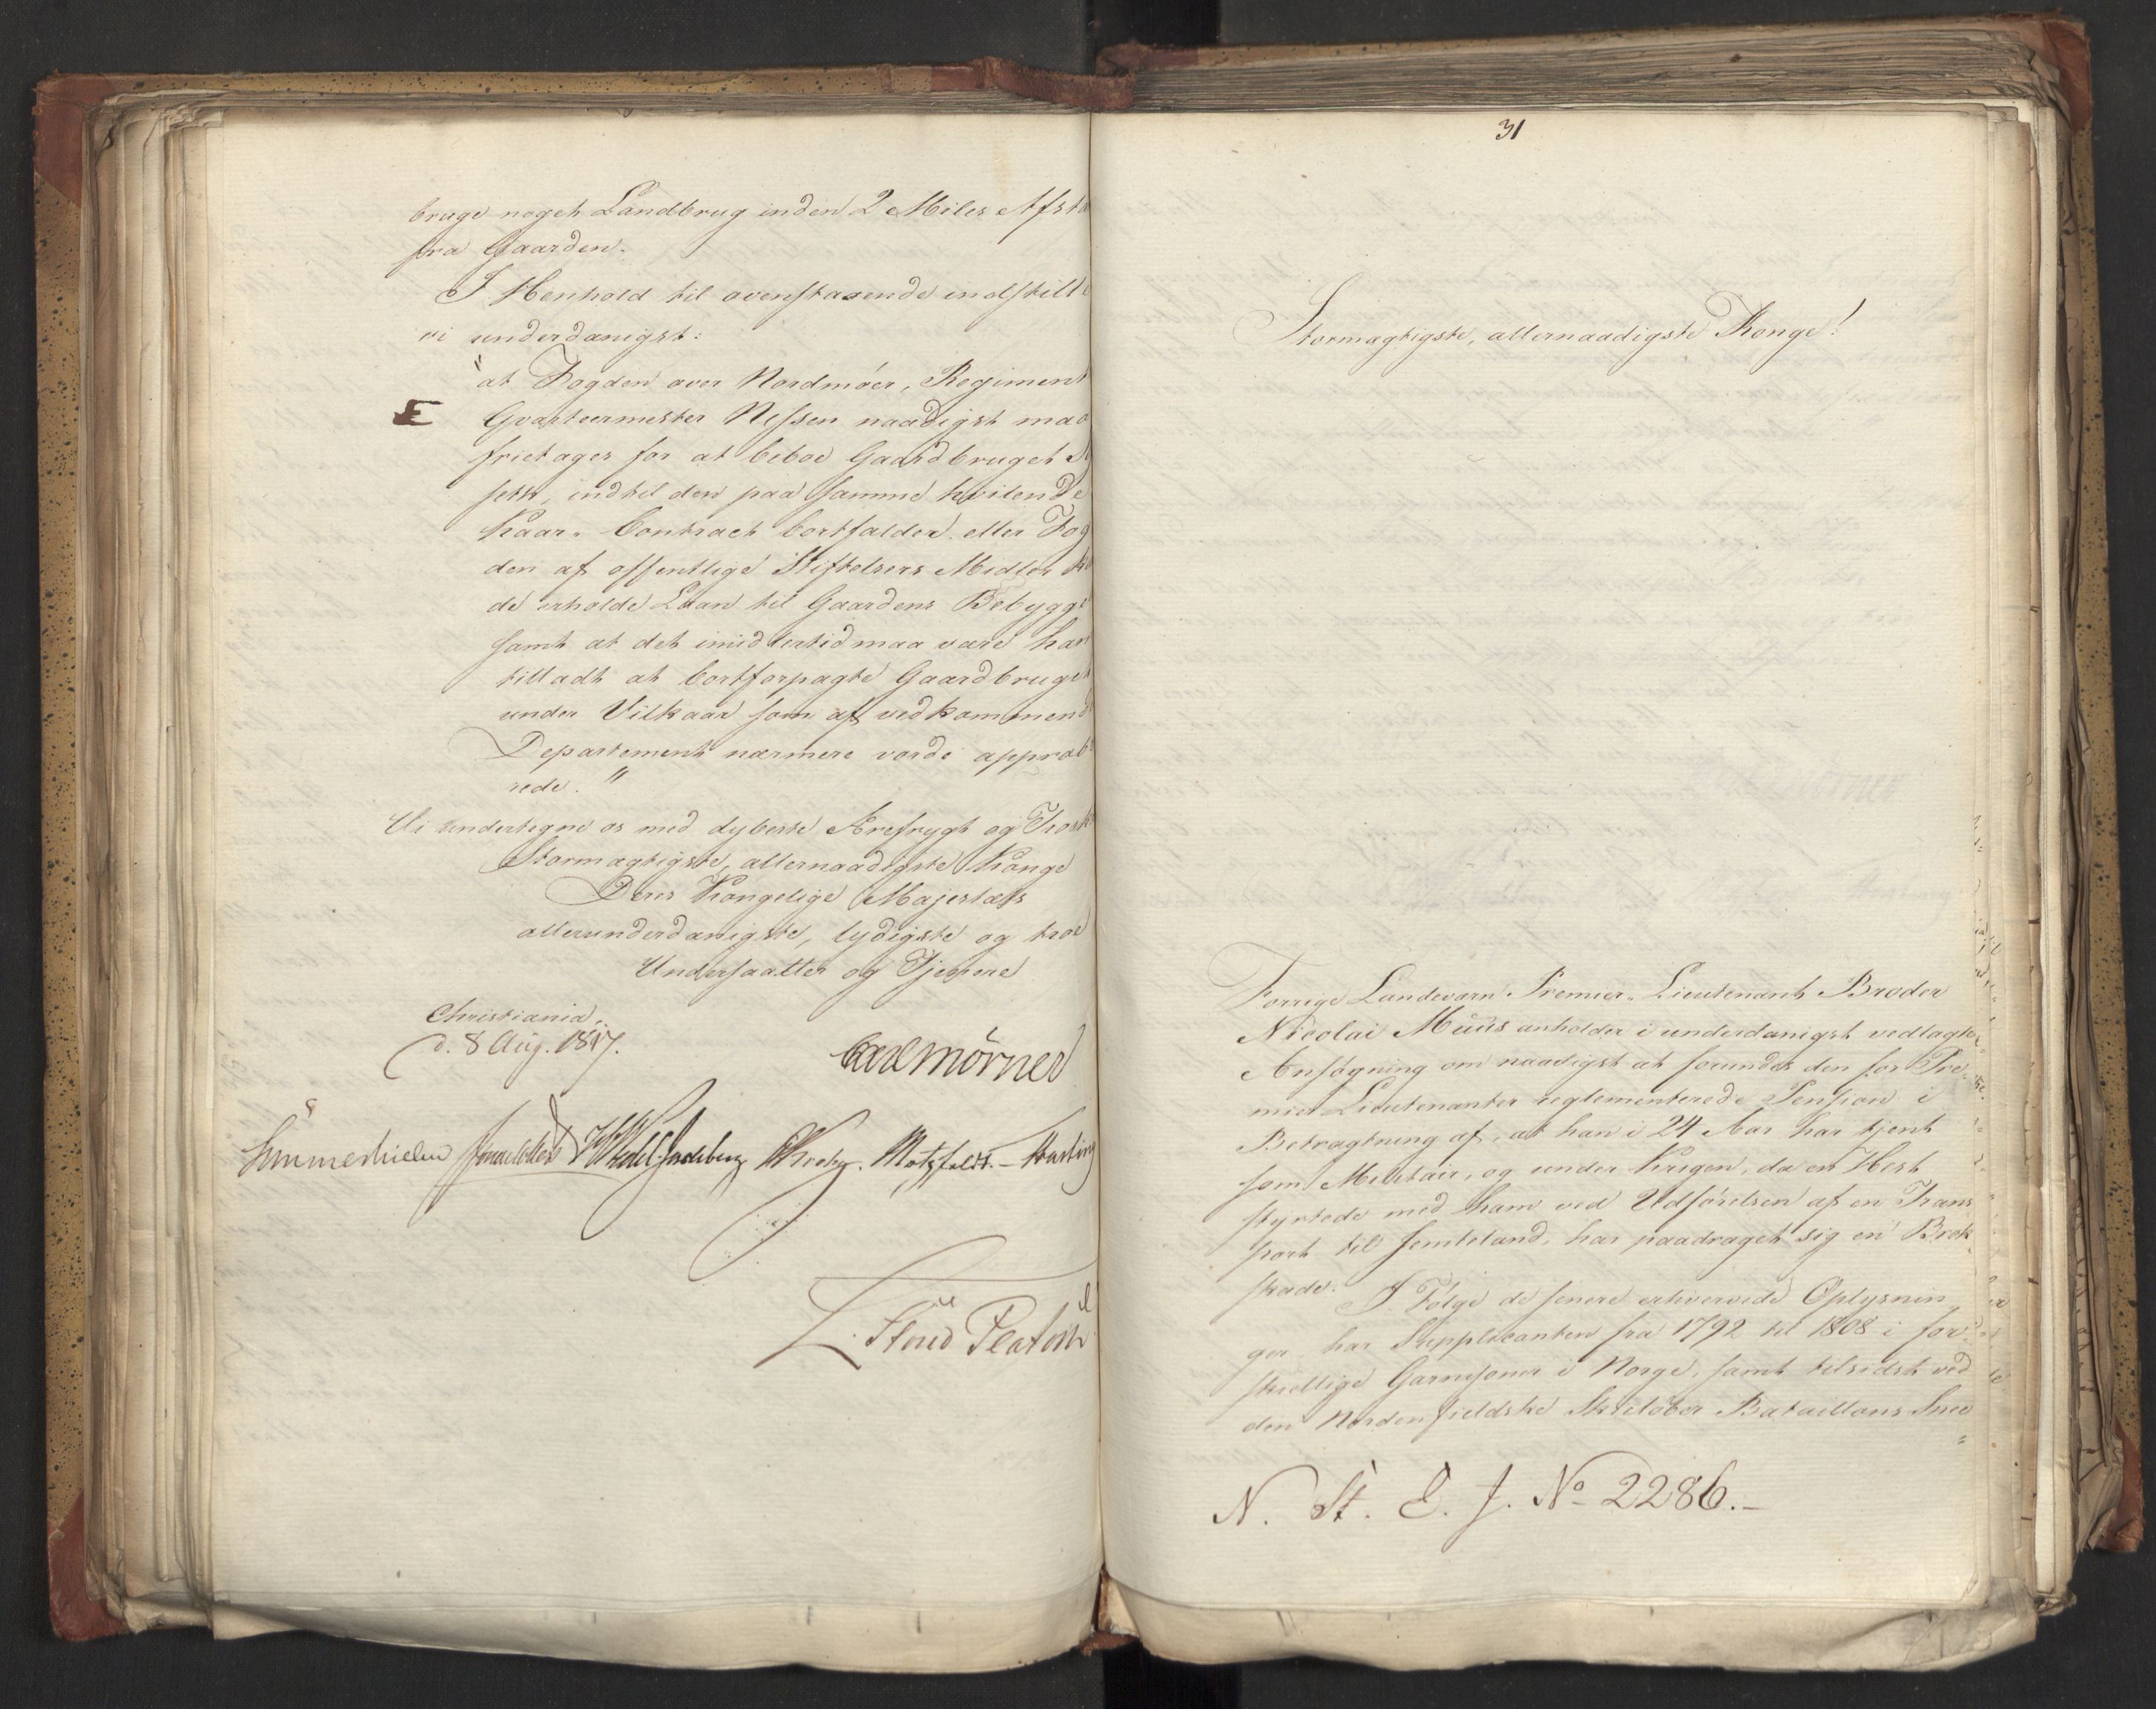 bruge noget Landbrug inden 2 Miles Afsta
fra Gaarden.
I Henhold til ovenstaaende indstille
vi underdanigst:
"at Fogden over Nordmöer, Regiment
Qvarteermester Nessen naadigst maa
frietages for at beboe Gaardbruget
sett, indtil den paa samme hvilende
Kaar-Contract bortfalder eller Fog
den af offentlige Stiftelsers Midler
de erholde Laan til Gaardens Bebygge
samt at det imidlertid maa være ham
tilladt at bortforpagte Gaardbruget
under Vilkaar som af vedkommende
Departement nærmere vorde approbe
rede."
Vi undertegne os med dybeste Ærefrygt og Trosk
Stormægtigste, allernaadigste Konge
Deres Kongelige Majestæts
allerunderdanigste, lydigste og troe
Undersaatter og Tjenere
Christiania,
d. 8 Aug. 1817.
Carl Mörner
Sommerhielm Wedel Jarlsberg Krebs. Motzfeldt.
31
Stormægtigste, allernaadigste Konge!
Forrige Landeværn Premier-Lieutenant Broder
Nicolai Müüs anholder i underdanigst vedlagte
Ansögning om naadigst at forundes den for Pre-
mier Lieutenanter reglementerede Pension i
Betragtning af, at han i 24 Aar har tjent
som Militair, og under Krigen, da en Hest
styrtede med ham ved Udförelsen af en Trans
port til Jemteland, har paadraget sig en Brok-
skade. I Fölge de senere erhvervede Oplysnin
ger har Supplicanten fra 1792 til 1808 i for-
skiellige Garnisoner i Norge, samt tilsidst ved
den Nordenfieldske Skielöber Bataillons Snee
N. St. E. J. No 2286.-